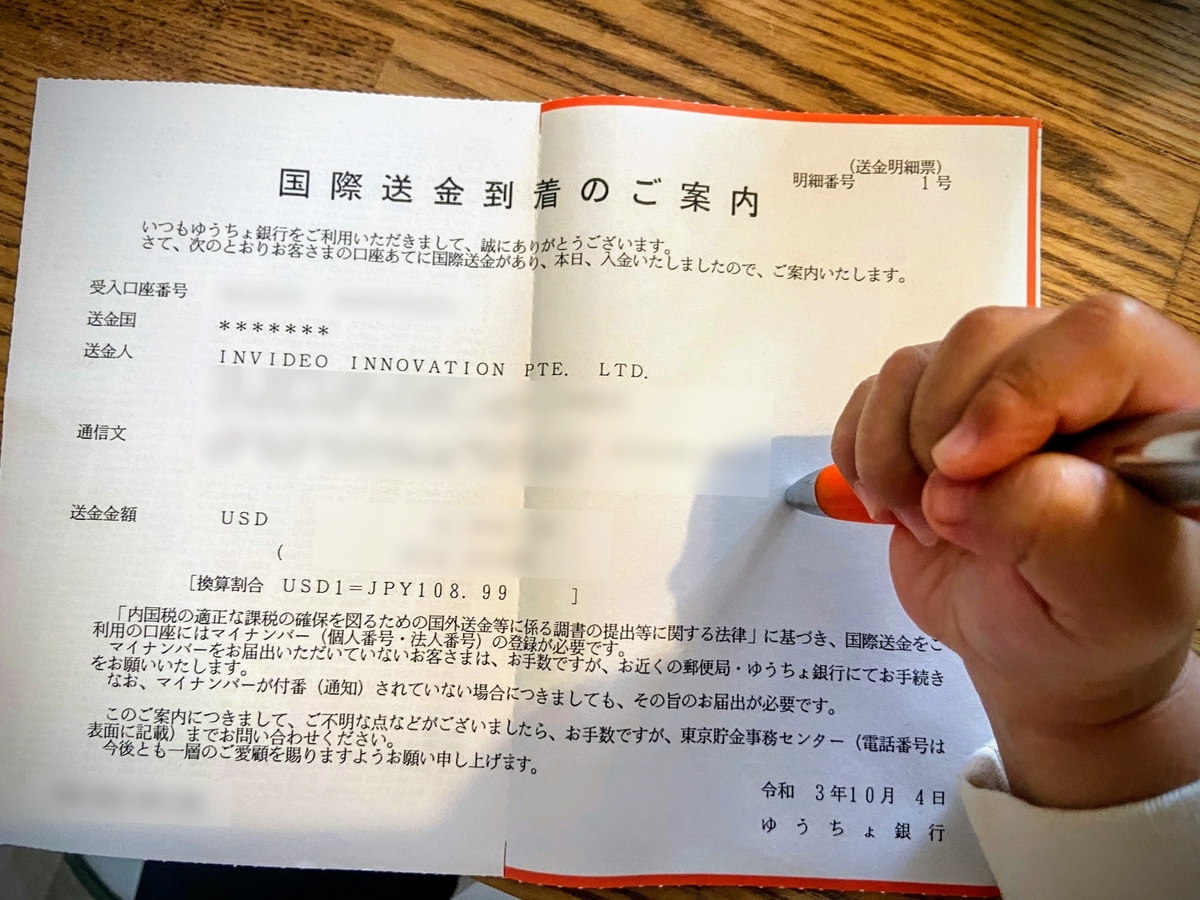 (送金明細票)
明細番号 1号
国際送金到着のご案内
いつもゆうちょ銀行をご利用いただきまして、誠にありがとうございます。
さて、次のとおりお客さまの口座あてに国際送金があり、本日、入金いたしましたので、ご案内いたします。
受入口座番号
送金国 *******
送金人 INVIDEO INNOVATION PTE. LTD.
通信文
送金金額 USD
(
[換算割合 USD1=JPY108.99 ]
「内国税の適正な課税の確保を図るための国外送金等に係る調書の提出等に関する法律」に基づき、国際送金をご
利用の口座にはマイナンバー(個人番号・法人番号)の登録が必要です。
マイナンバーをお届出いただいていないお客さまは、お手数ですが、お近くの郵便局・ゆうちょ銀行にてお手続き
をお願いいたします。
なお、マイナンバーが付番(通知)されていない場合につきましても、その旨のお届出が必要です。
このご案内につきまして、ご不明な点などがございましたら、お手数ですが、東京貯金事務センター(電話番号は
表面に記載)までお問い合わせください。
今後とも一層のご愛顧を賜りますようお願い申し上げます。
令和 3年10月 4日
ゆうちょ銀行